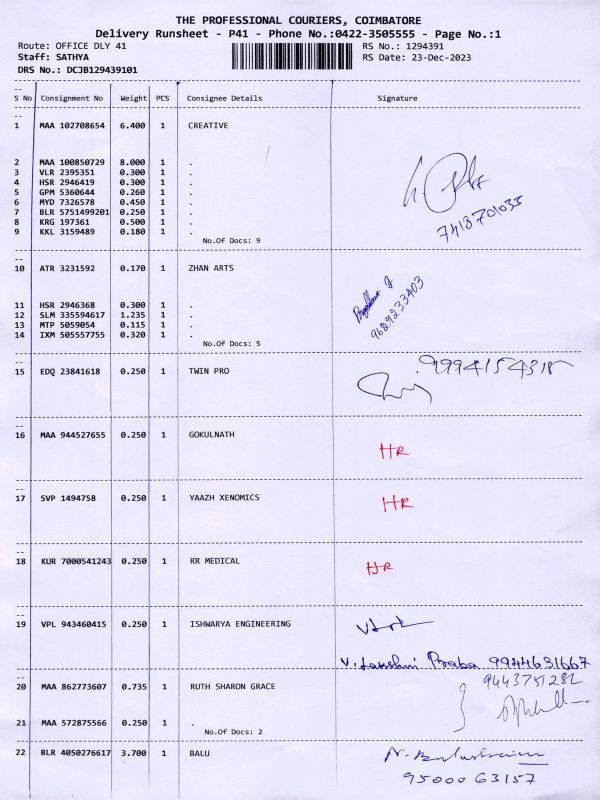 THE PROFESSIONAL COURIERS, COIMBATORE
Delivery Runsheet - P41 - Phone No.:0422-3505555 - Page No.:1
Route: OFFICE DLY 41 RS No.: 1294391
Staff: SATHYA RS Date: 23-Dec-2023
DRS No.: DCJB129439101
S No Consignment No Weight PCS Consignee Details Signature
1 MAA 102708654 6.400 1 CREATIVE
2 MAA 100850729 8.000 1 .
3 VLR 2395351 0.300 1 .
4 HSR 2946419 0.300 1 .
5 GPM 5360644 0.260 1 .
6 MYD 7326578 0.450 1 .
7 BLR 5751499201 0.250 1 .
8 KRG 197361 0.500 1 .
9 KKL 3159489 0.180 1 .
7418701035
No.Of Docs: 9
10 ATR 3231592 0.170 1 ZHAN ARTS
11 HSR 2946368 0.300 1 .
12 SLM 335594617 1.235 1 .
13 MTP 5059054 0.115 1 .
14 IXM 505557755 0.320 1 .
No.Of Docs: 5
15 EDQ 23841618 0.250 1 TWIN PRO
16 MAA 944527655 0.250 1 GOKULNATH
HR
17 SVP 1494758 0.250 1 YAAZH XENOMICS HR
18 KUR 7000541243 0.250 1 RR MEDICAL
HR
19 VPL 943460415 0.250 1 ISHWARYA ENGINEERING
V. Lakshmi Praba 9944631667
9443751282
20 MAA 862773607 0.735 1 RUTH SHARON GRACE
21 MAA 572875566 0.250 1 .
No.Of Docs: 2
22 BLR 4050276617 3.700 1 BALU
95000 63157